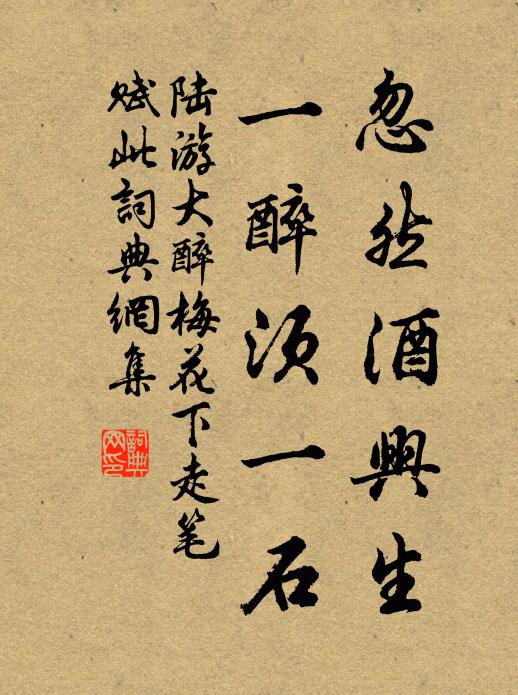 忽然酒興生
一醉須一石
陆游大醉梅花下走笔
赋此詞典網集
詞典
网印